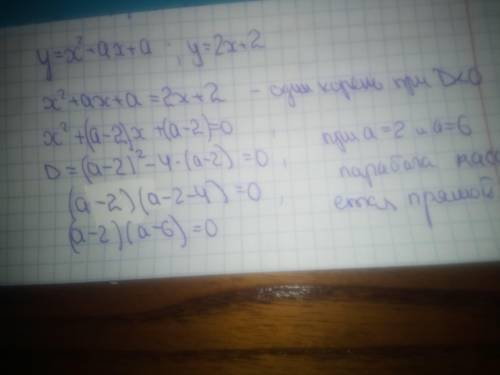 y=x²+ax+a ; y=2x+2
x²+ax+a=2x+2 - один корень при D<0
x²+(a-2)x+(a-2)=0
D=(a-2)²-4·(a-2)=0,
(a-2)(a-2-4)=0
(a-2)(a-6)=0
при a=2 и a=6
парабола касa
ется прямой